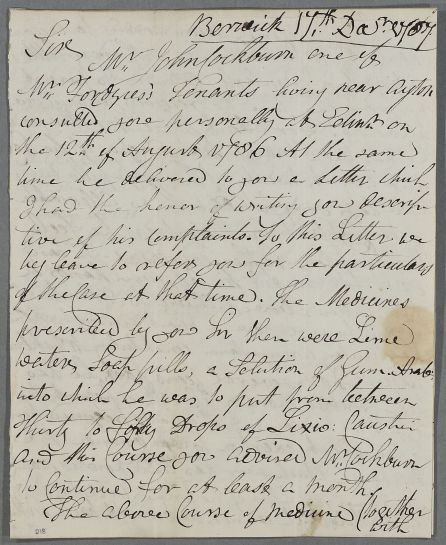 Berwick 17th Decr 1787
Sir
Mr John Cockburn one of
Mr Fordyces's Tenants living near Ayton
consulted you personally at Edinr on
the 12th of August 1786 At the same
time he delivered to you a Letter which
I had the honor of writing you descrip
tive of his Complaints. To this Letter we
beg leave to refer you for the particulars
of the Case at that time. The Medicines
prescribed by you Sir then were Lime
water, Soap pills, a Solution of Gum. Arab:
into which he was to put from between
Thirty to Forty Drops of Lixiv: Caustic
and this Course you advised Mr Cockburn
to Continue for at least a month
The above Course of Medicine together
with
218